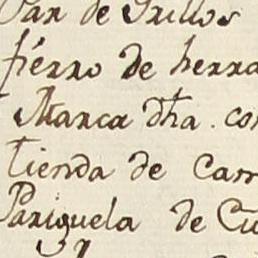 Par de Grillos
fierro de herra
Marca dha. con
Tienda de Cam
Pariguela de Cu